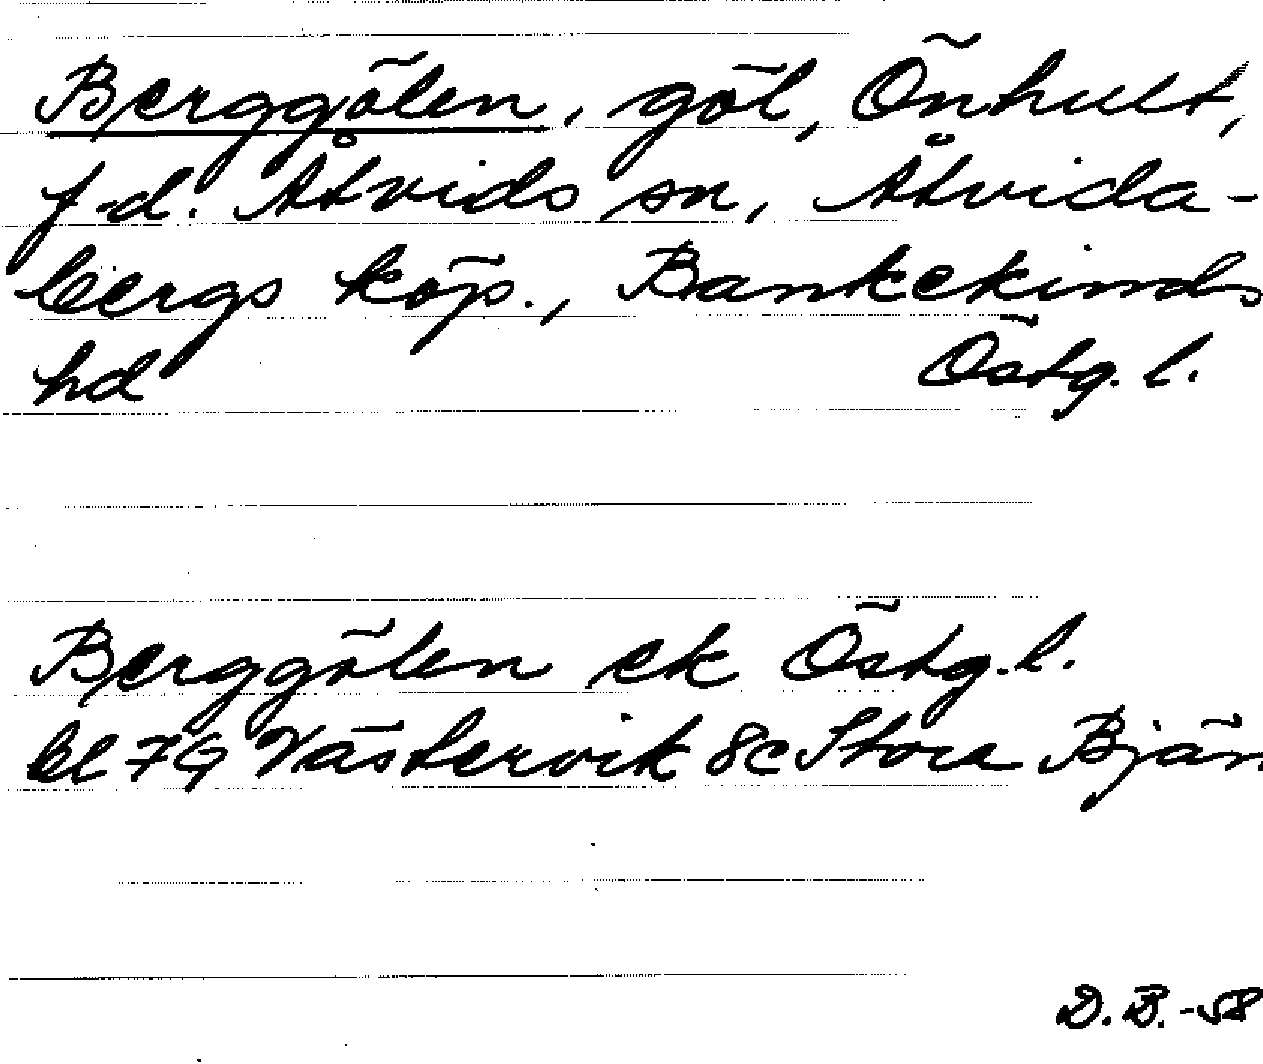 Berggölen, göl, Önhult,
f.d. Åtvids sn, Åtvida-
bergs köp., Bankekinds
hd Östg. l.
Berggölen ek Östg. l.
bl 7G Västervik 8c Stora Bjän
D.B.-58